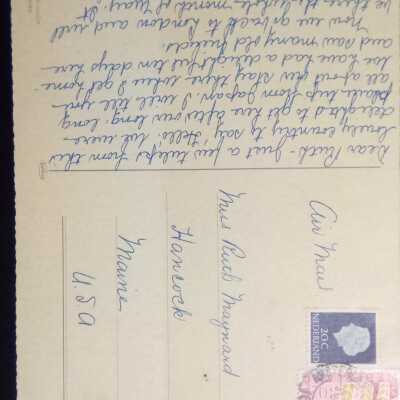 Dear Ruth - Just a few tulips from this
lovely country to say "Hello". We were
delighted to get here after our long, long
plane trip from Japan. I will tell you
all about our stay there when I get home.
We have had a delightful ten days here
and saw many old friends.
Now we go back to London and will
be there the whole month of May.
Air Mail
Miss Ruth Maynard
Hancock
Maine
U.S.A
20C
NEDERLAND